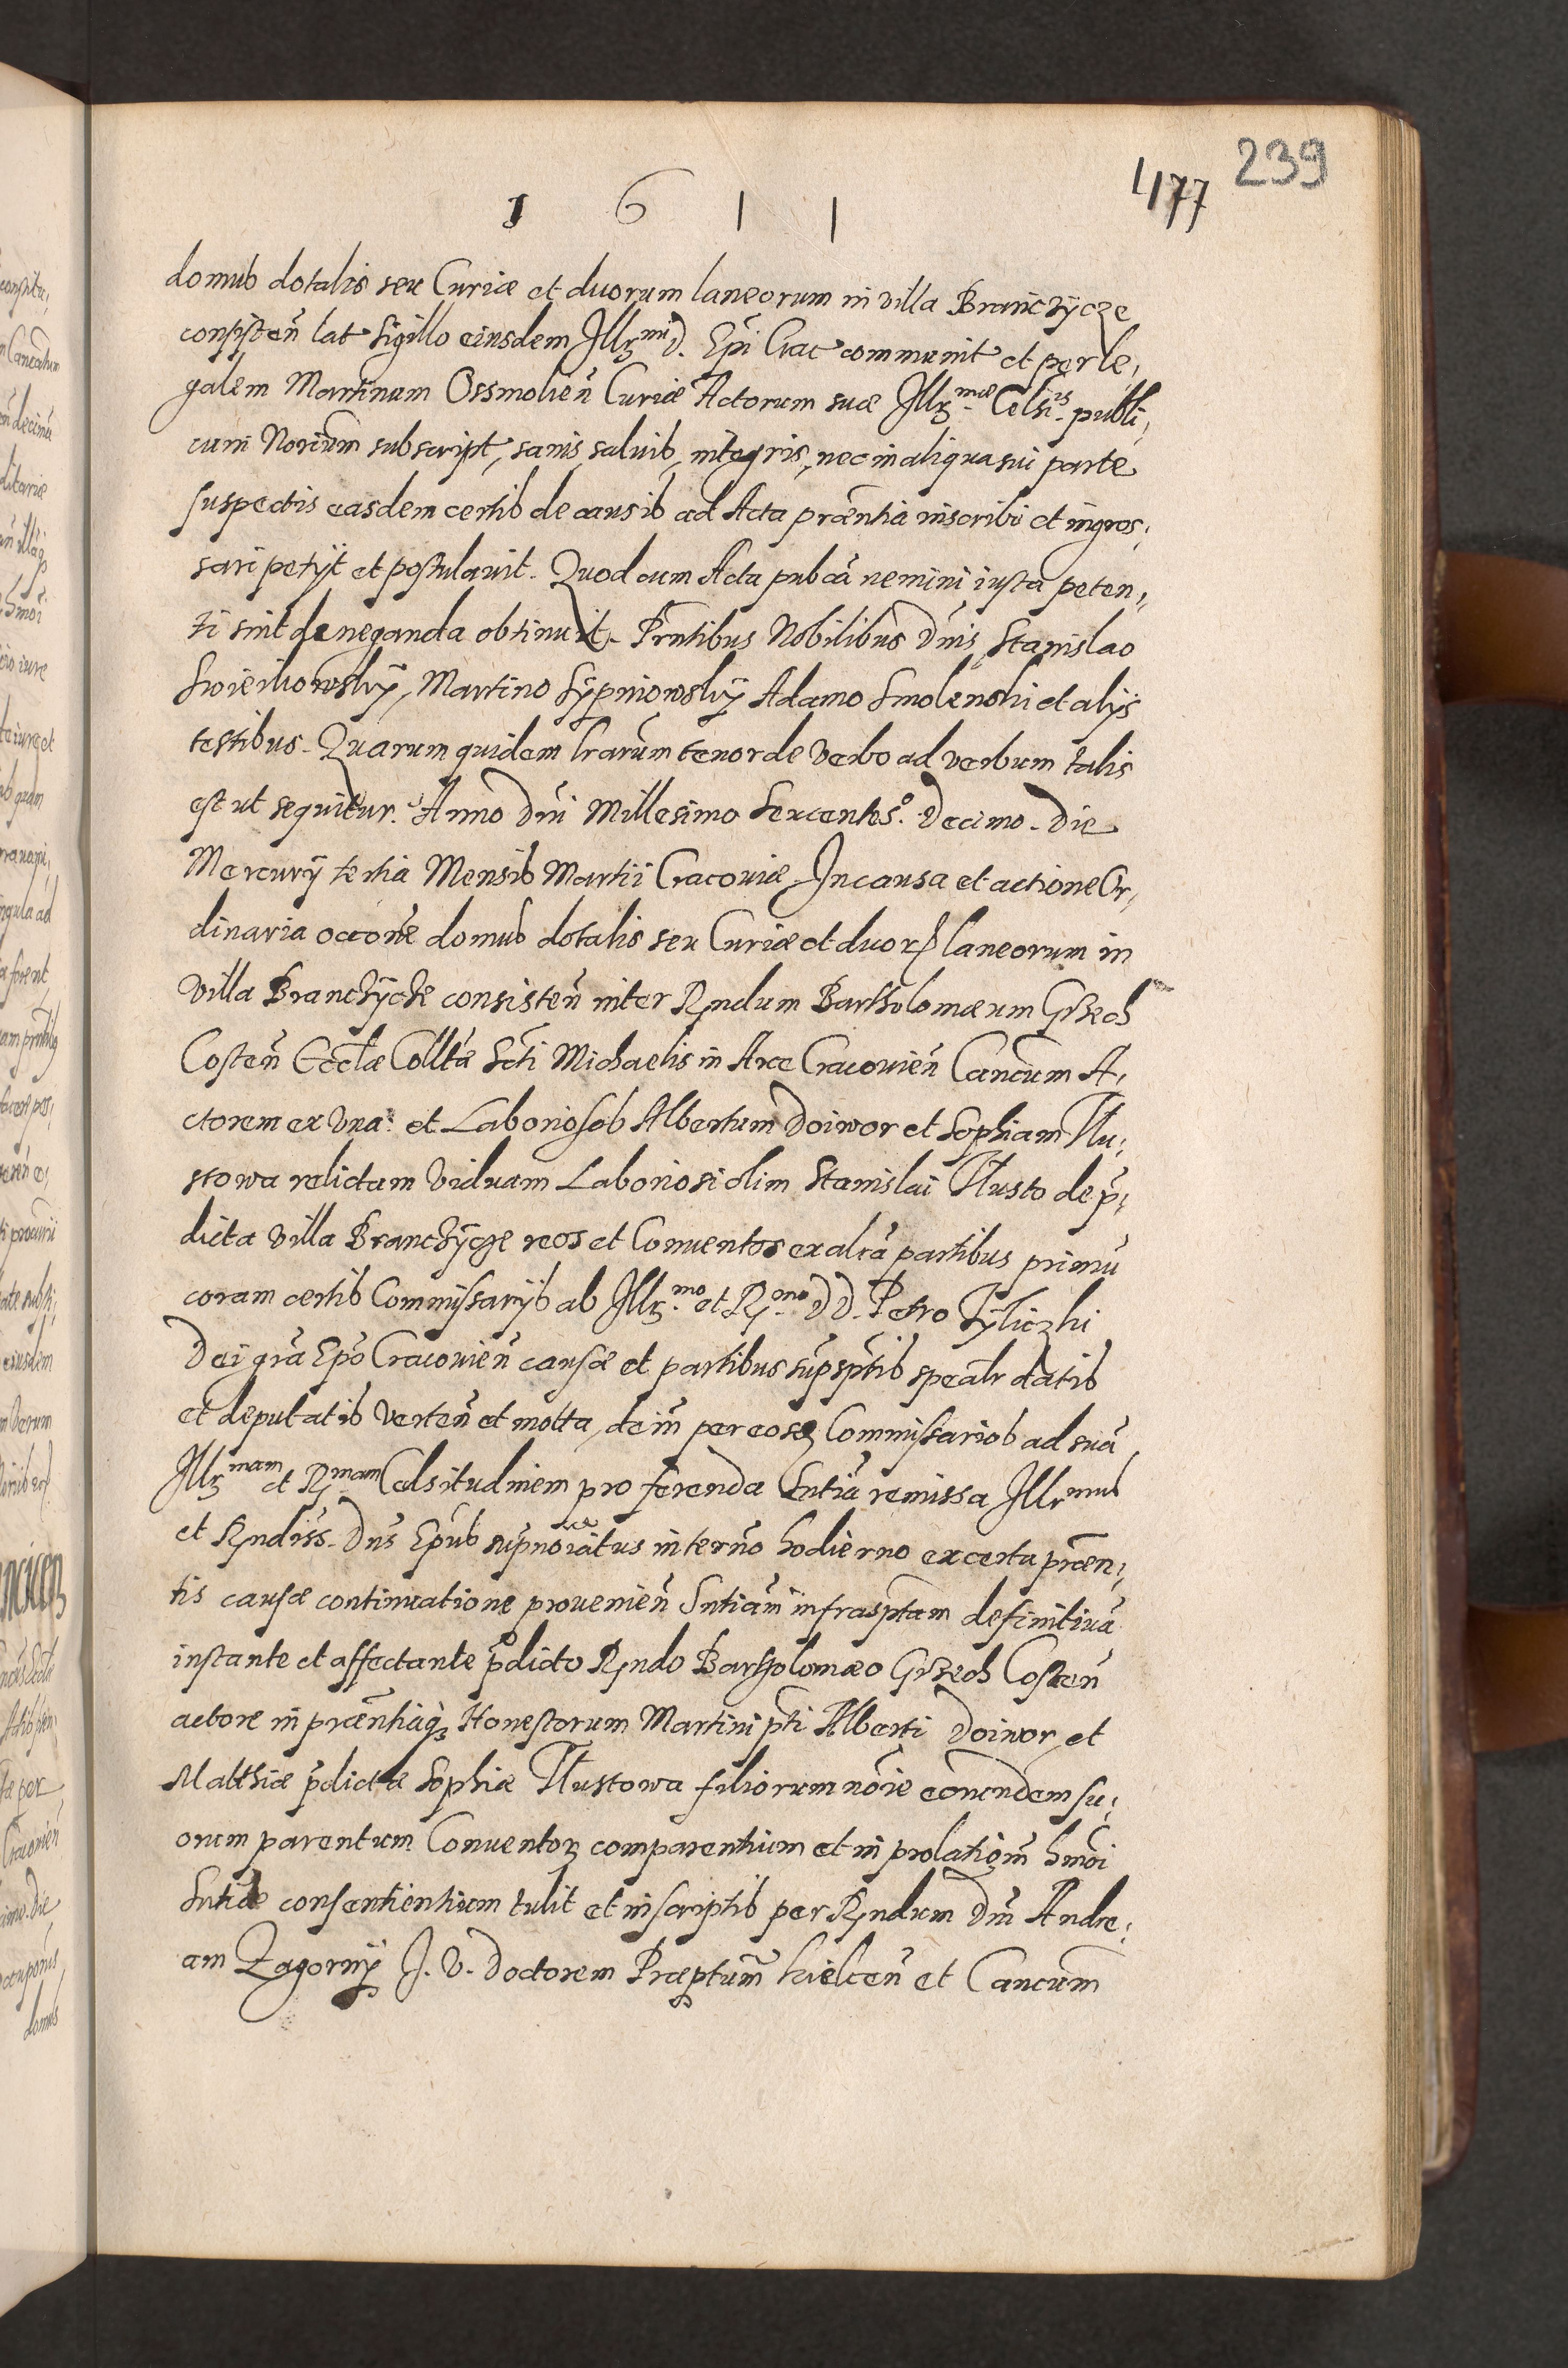 239
477
1 6 1 1
domus dotalis seu Curiæ et duorum laneorum in villa Branczÿcze
consisteñ lat Sigillo eiusdem Illr̃mi D. Epĩ Crac communit et per le,
galem Martinum Ossmolień Curiæ Actorum suæ Illr̃mæ Celsnis publi,
cum Norium subscript, sanis saluis, integris, nec in aliqua sui parte
suspectis easdem certis de causis ad Acta præntia inscribi et ingros,
sari petijt et postulauit. Quod cum Acta pubca nemini iusta peten,
ti sint deneganda obtinuit. Prntibus Nobilibus Dnis, Stanislao
Swierchowskÿ, Martino Sÿpniowskÿ Adamo Smolenski et alijs
testibus. Quarum quidem lrarum tenor de verbo ad verbum talis
est ut sequitur. Anno Dni Millesimo Sexcentes.o Decimo. Die
Mercurij tertia Mensis Martii Cracouiæ. In causa et actione Or,
dinaria occone domus dotalis seu Curiæ et duor laneorum in
villa Branczÿcze consisteñ inter Rndum Bartholomæum Grzech
Costeñ Ecclæ Colltæ Scti Michaelis in Arce Cracouień Cancum A,
ctorem ex vna: et Laboriosos Albertum Doiwor et Sophiam Tłu,
stowa relictam viduam Laboriosi olim Stanislai Tłusto de p,
dicta villa Branczÿcze reos et Conuentos ex altra partibus primu
coram certis Commissarijs ab Illr.mo et R.mo D D. Petro Tÿliczki
Dei gra Epo Cracouień causæ et partibus supsptis spealr datis
et deputatis verteñ et motta, dein per eosq Commissarios ad sua
Illr̃mam et Rmam Celsitudinem pro ferenda Sntia remissa Illrmus
et Rndiss. Dns Epus supnoiatus in terno hodierno ex certa præn,
tis causæ continuatione prouenień Sntiam infrasptam definitiua
instante et affectante pdicto Rndo Bartholomæo Grzech Costeñ
actore in præntiaq Honestorum Martini pti Alberti Doiwor, et
Matthiæ pdictæ Sophiæ Tłustowa filiorum noie eorundem su,
orum parentum Conuentor comparentium et in prolationem hmoi
Sntiæ consentientium tulit et in scriptis per Rndum Dm Andre,
am Zagornÿ J. V. Doctorem Præptum Kielceñ et Cancum